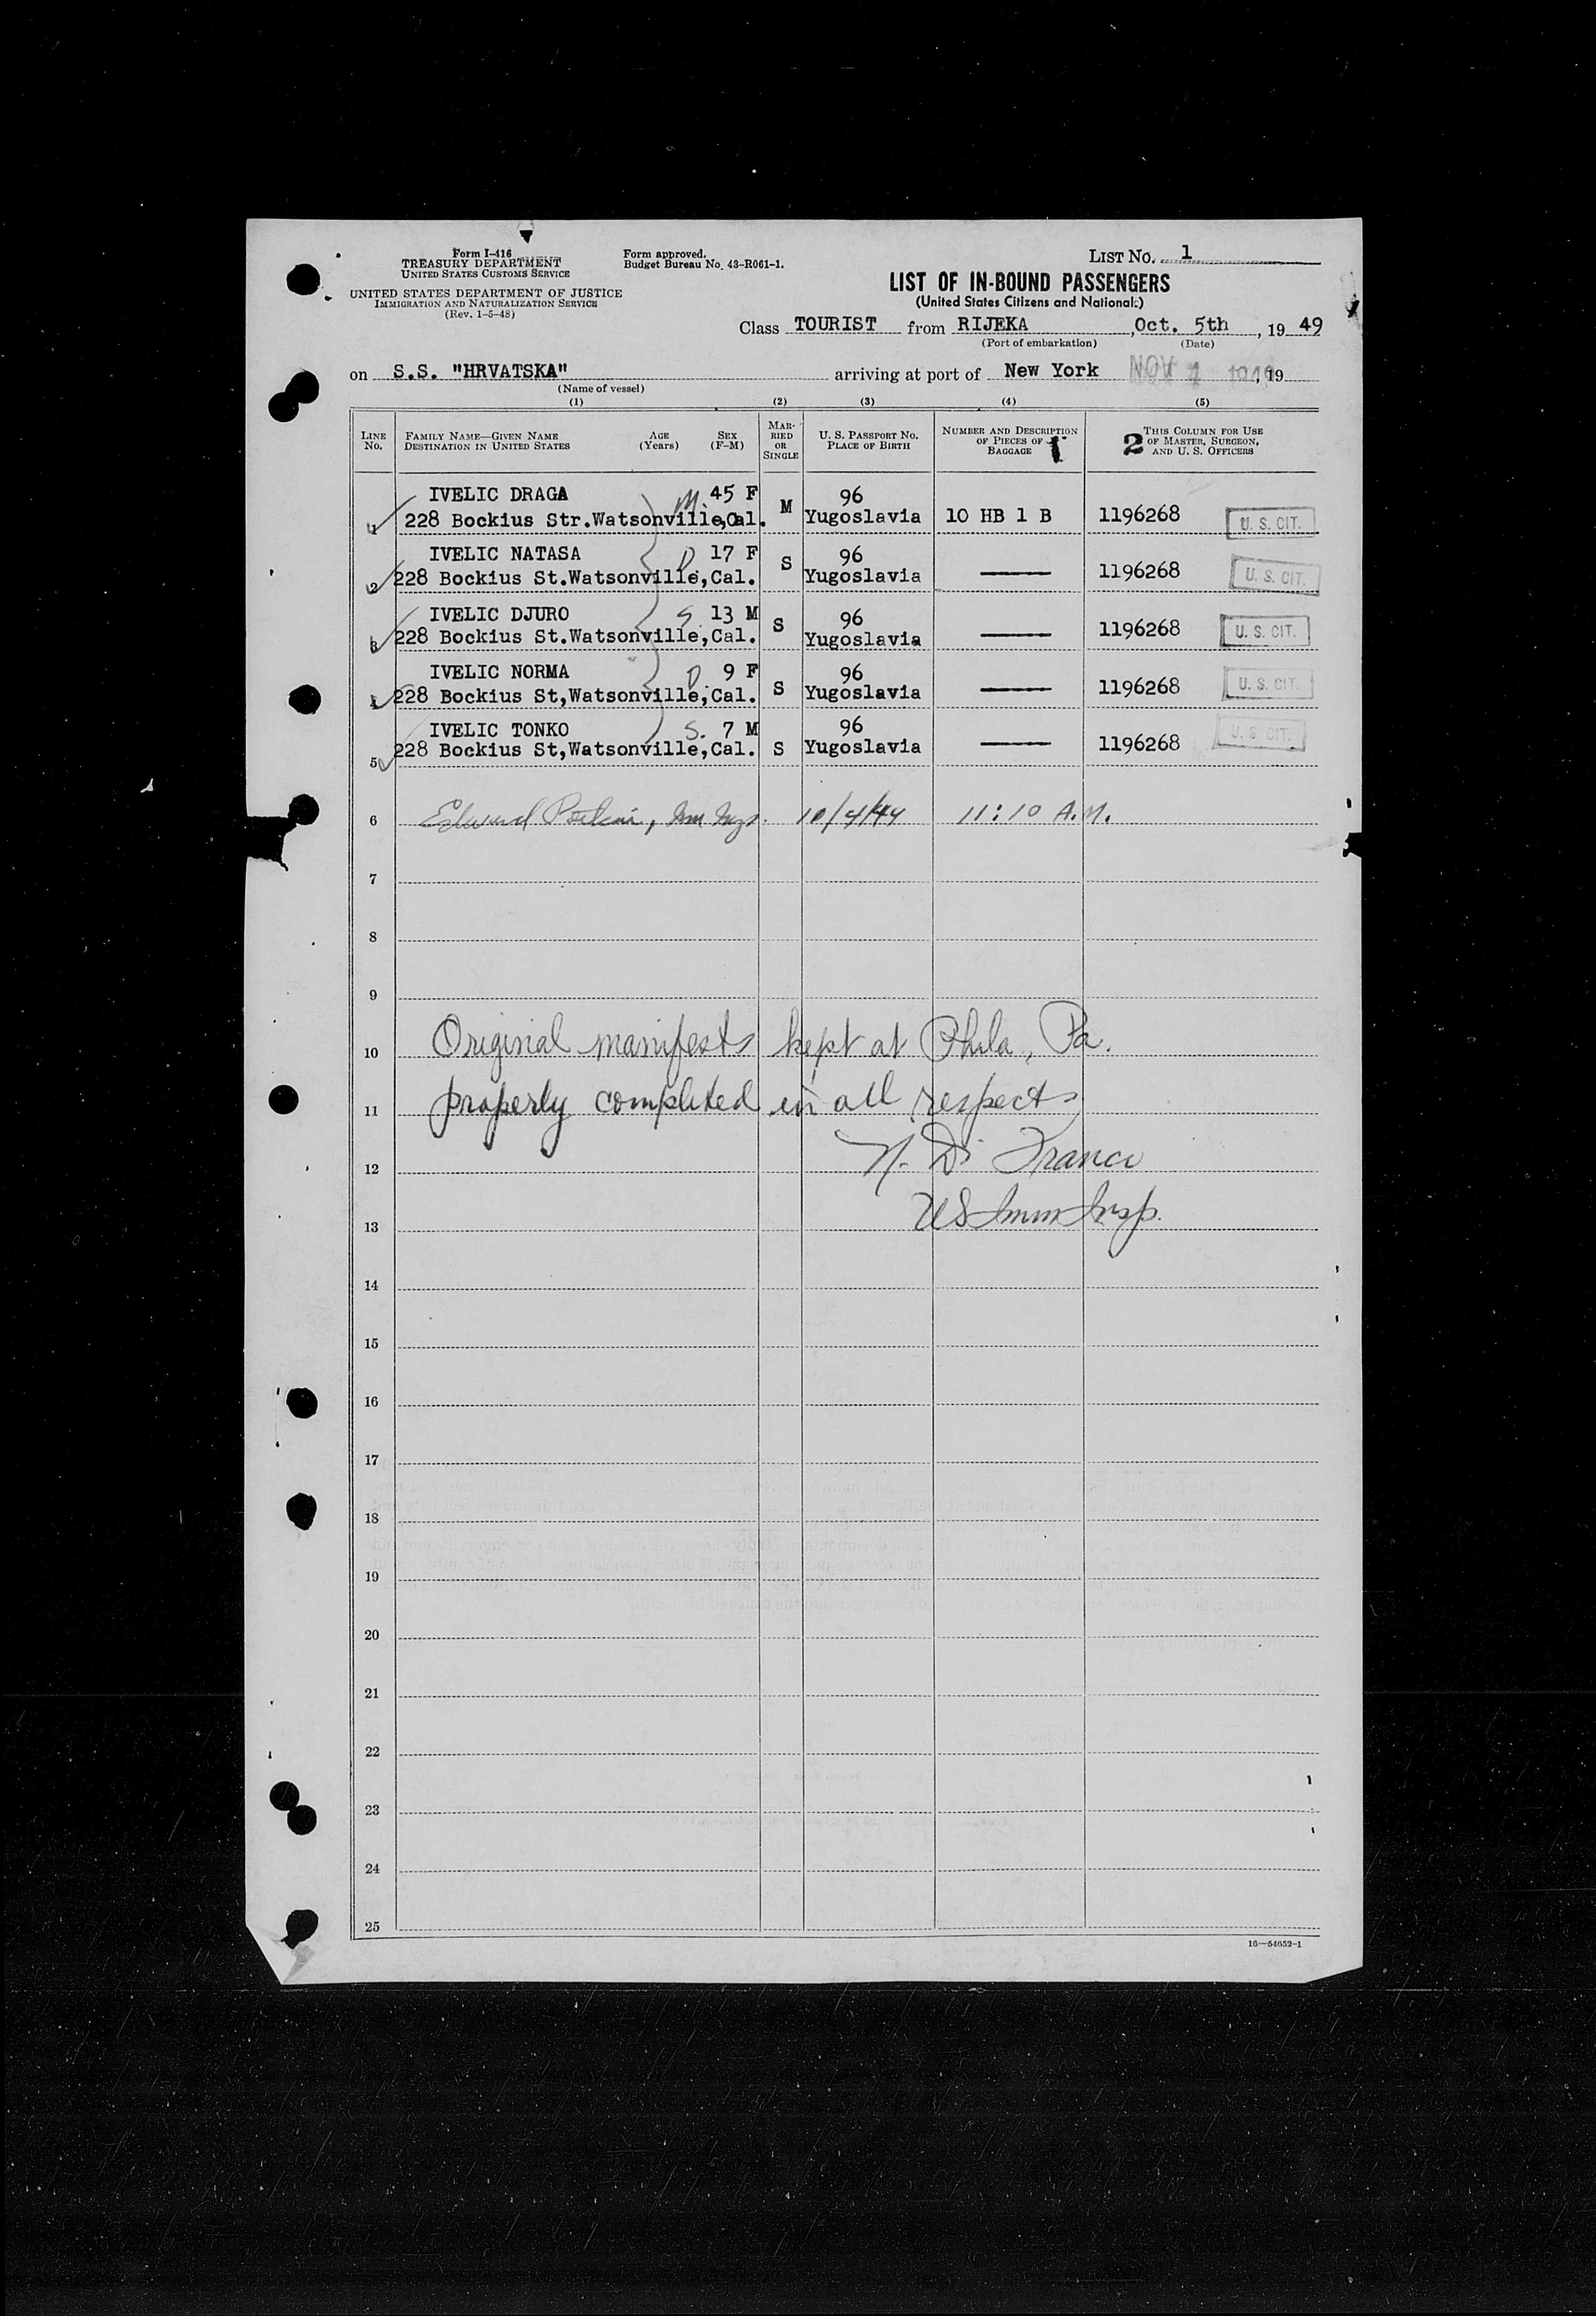 Form I-416
TREASURY DEPARTMENT
UNITED STATES CUSTOMS SERVICE
UNITED STATES DEPARTMENT OF JUSTICE
IMMIGRATION AND NATURALIZATION SERVICE
(Rev. 1-5-48)
Form approved.
Budget Bureau No. 43-R061-1.
LIST NO. 1
LIST OF IN-BOUND PASSENGERS
(United States Citizens and Nationals)
Class TOURIST from RIJEKA, Oct. 5th, 19 49
(Port of embarkation) (Date)
on S.S. "HRVATSKA" arriving at port of New York NOV 1949, 19
(Name of vessel)
(1) (2) (3) (4) (5)
LINE NO. FAMILY NAME—GIVEN NAME DESTINATION IN UNITED STATES AGE (Years) SEX (F-M) MARRIED OR SINGLE U. S. PASSPORT NO. PLACE OF BIRTH NUMBER AND DESCRIPTION OF PIECES OF BAGGAGE 1 2 THIS COLUMN FOR USE OF MASTER, SURGEON, AND U. S. OFFICERS
IVELIC DRAGA M. 45 F 96
1 228 Bockius Str.Watsonville,Cal. M Yugoslavia 10 HB 1 B 1196268 U. S. CIT.
IVELIC NATASA D 17 F 96
2 228 Bockius St.Watsonville,Cal. S Yugoslavia 1196268 U. S. CIT.
IVELIC DJURO S. 13 M 96
3 228 Bockius St.Watsonville,Cal. S Yugoslavia 1196268 U. S. CIT.
IVELIC NORMA D. 9 F 96
4 228 Bockius St,Watsonville,Cal. S Yugoslavia 1196268 U. S. CIT.
IVELIC TONKO S. 7 M 96
5 228 Bockius St,Watsonville,Cal. S Yugoslavia 1196268 U. S. CIT.
6 Edward 11:10 A.M.
7
8
9
10 Original manifests kept at Phila, Pa.
11 properly completed in all respects
12 N. Di Franco
13 US Imm Insp.
14
15
16
17
18
19
20
21
22
23
24
25
16—54652-1